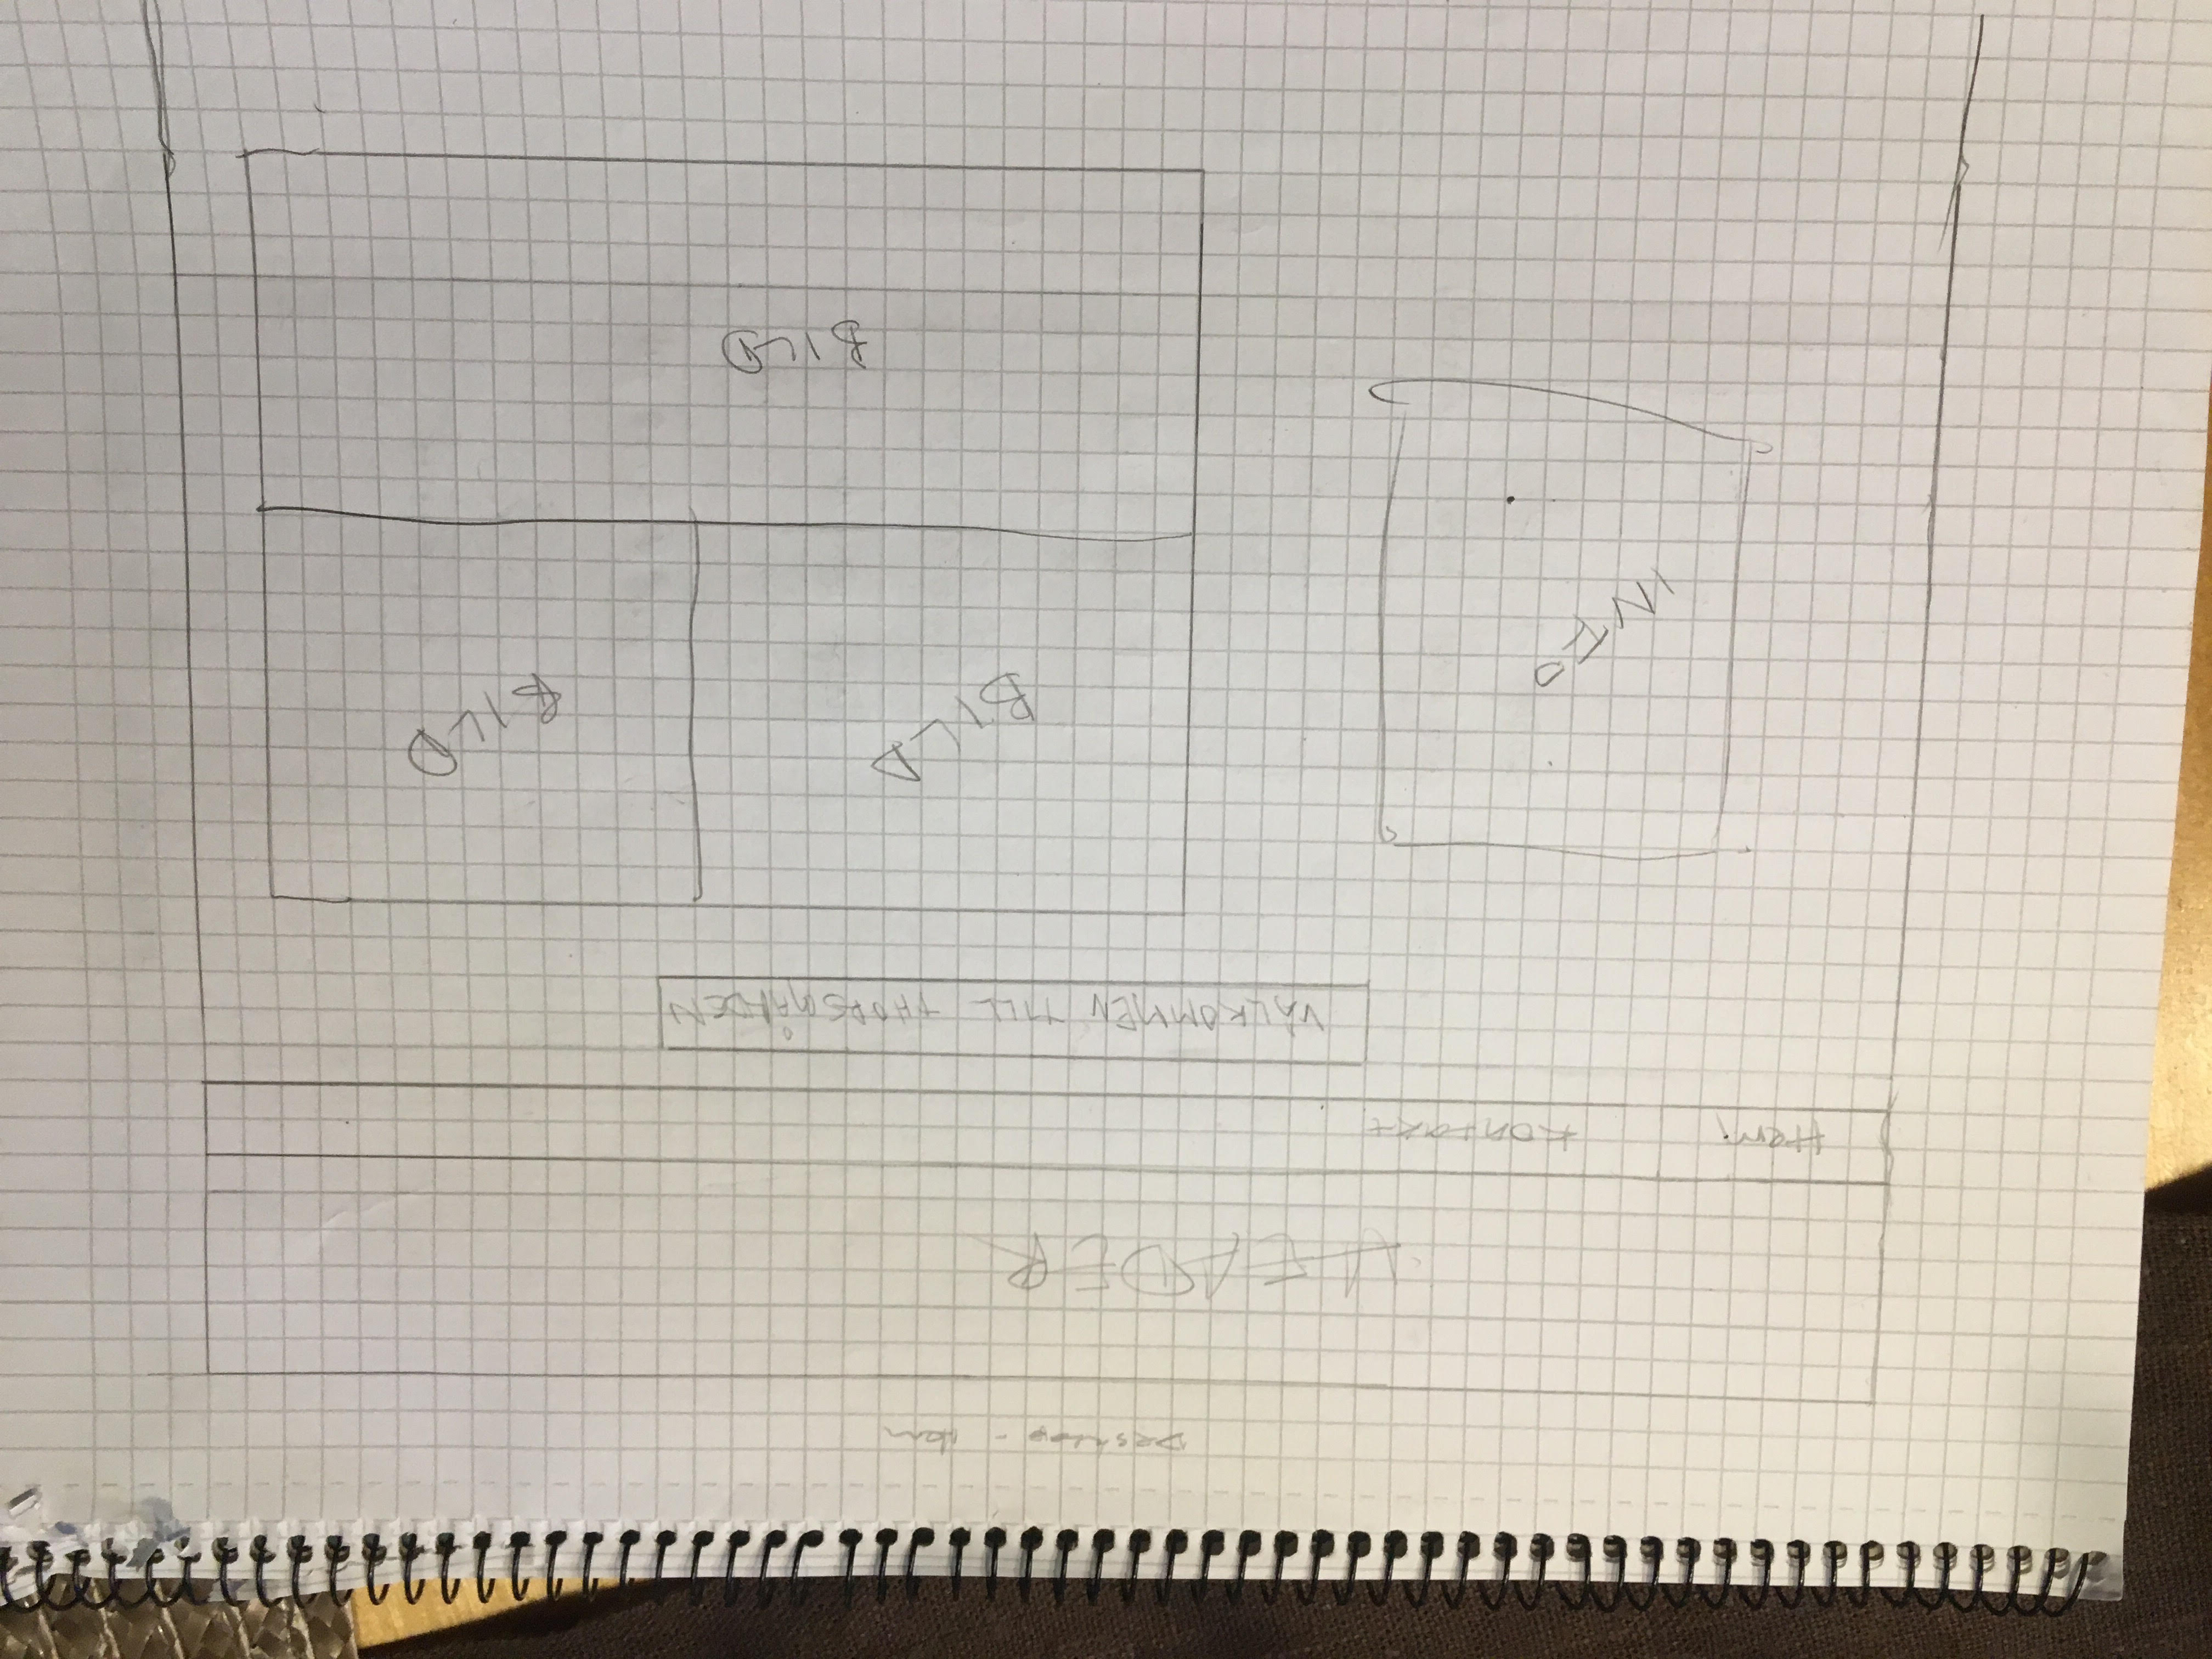 Desktop - Hem
HEADER
Hem! Kontakt
VÄLKOMMEN TILL THORSMÅNDEN
INFO
BILD BILD
BILD